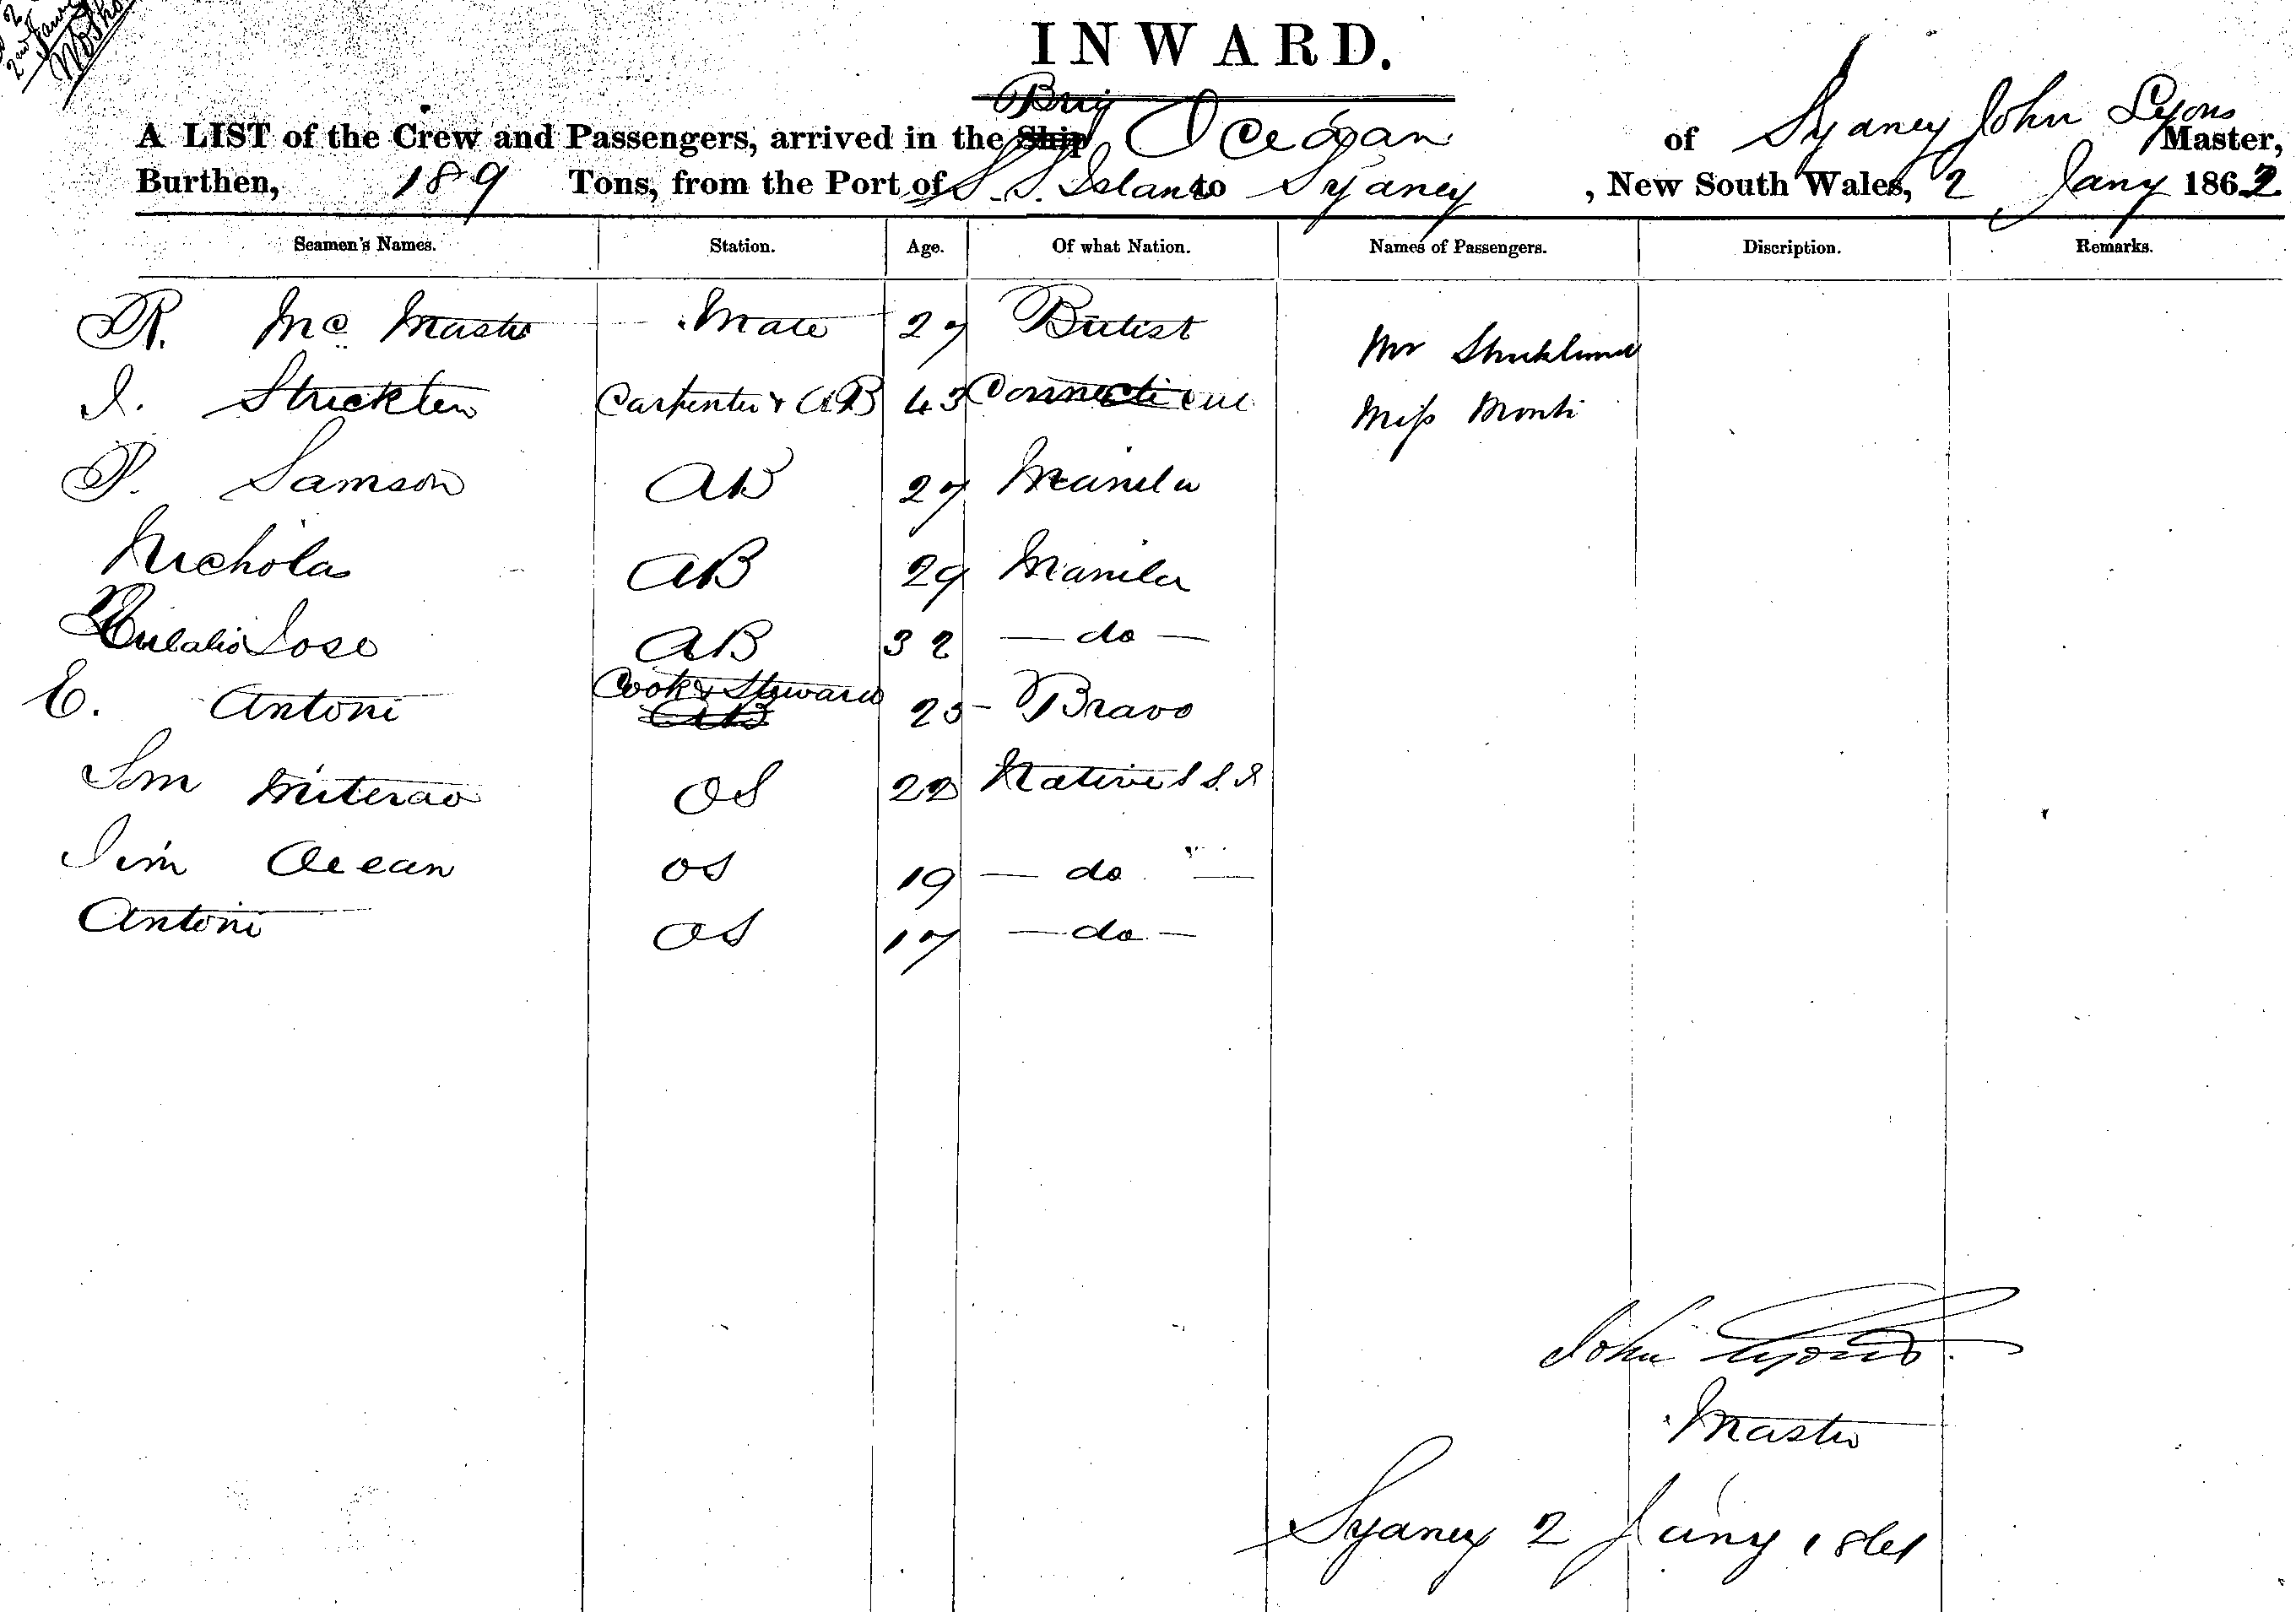 INWARD.
Brig
A LIST of the Crew and Passengers, arrived in the Ship Ocean of Sydney John Lyons Master,
Burthen, 189 Tons, from the Port of S. S. Island to Sydney, New South Wales, 2 Jany 1862
Seamen's Names. Station. Age. Of what Nation. Names of Passengers. Discription. Remarks.
R. Mc Master Mate 27 British
Mr
J. Strickten Carpenter & AB 43 Connecticut
Miss Monti
P. Samson AB 27 Manila
Nicholas AB 29 Manila
Eulalio Jose AB 32 — do —
Cook & Steward
E. Antoni AB 25 Bravo
Tom Miterao OS 22 Native S S. I
Jim Ocean OS 19 — do —
Antoni OS 17 — do —
John Lyons.
Master
Sydney 2 Jany 1861